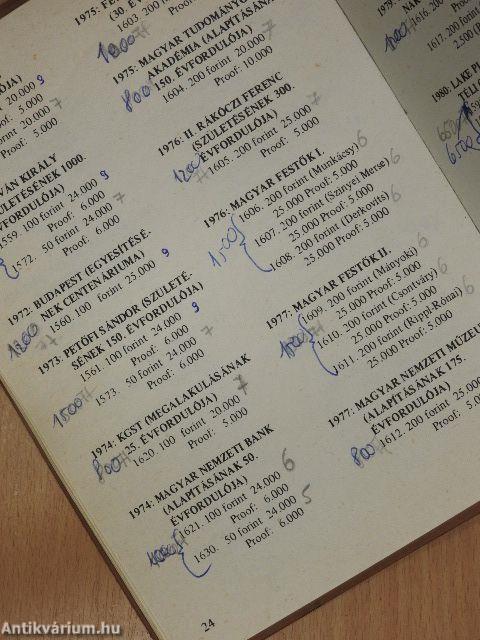 OJA)
20.000 9
Proof: 5.000
rint 20.000 7
Proof: 5.000
VÁN KIRÁLY
ÜLETÉSÉNEK 1000.
VFORDULÓJA)
1559. 100 forint 24.000 9
Proof: 6.000
1572. 50 forint 24.000 7
Proof: 6.000
1972: BUDAPEST (EGYESÍTÉSÉ-
NEK CENTENÁRIUMA)
1560. 100 forint 25.000 9
1973: PETŐFI SÁNDOR (SZÜLETÉ-
SÉNEK 150. ÉVFORDULÓJA)
1561. 100 forint 24.000 9
Proof: 6.000
1573. 50 forint 24.000 7
Proof: 6.000
1500
1974: KGST (MEGALAKULÁSÁNAK
25. ÉVFORDULÓJA)
1620. 100 forint 20.000 7
800
Proof: 5.000
1974: MAGYAR NEMZETI BANK
(ALAPÍTÁSÁNAK 50.
ÉVFORDULÓJA)
1621. 100 forint 24.000 6
Proof: 6.000
1630. 50 forint 24.000 5
Proof: 6.000
24
1975:
(30 ÉV
1603. 200 forint
Proof:
1975: MAGYAR TUDOMÁNYOS
AKADÉMIA (ALAPÍTÁSÁNAK
150. ÉVFORDULÓJA)
800
1604. 200 forint 20.000 7
Proof: 10.000
1976: II. RÁKÓCZI FERENC
(SZÜLETÉSÉNEK 300.
ÉVFORDULÓJA)
1200
1605. 200 forint 25.000 7
Proof: 5.000
1976: MAGYAR FESTŐK I.
1606. 200 forint (Munkácsy) 6
25.000 Proof: 5.000
1607. 200 forint (Szinyei Merse) 6
25.000 Proof: 5.000
1608. 200 forint (Derkovits) 6
25.000 Proof: 5.000
1977: MAGYAR FESTŐK II.
1609. 200 forint (Mányoki) 6
25 000 Proof: 5.000
1610. 200 forint (Csontváry) 6
25 000 Proof: 5.000
1611. 200 forint (Rippl-Rónai) 6
25 000 Proof: 5.000
1977: MAGYAR NEMZETI MÚZEU
(ALAPÍTÁSÁNAK 175.
ÉVFORDULÓJA)
800
1612. 200 forint 25.000
Proof: 5.0
1979:
NAK
1616. 200
1617. 200
2.500 (P
1980: LAKE PL
TÉLI
Antikvárium.hu